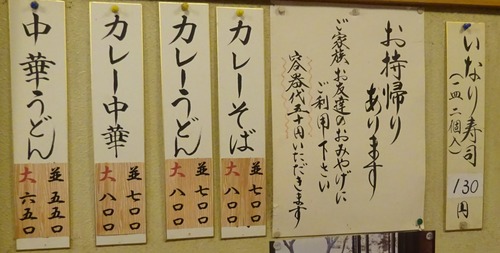 いなり寿司
(一皿二個入)
130円
お持帰り
あります
ご家族、お友達のおみやげに
ご利用下さい
容器代五十円いただきます
カレーそば
並 七〇〇
大 八〇〇
カレーうどん
並 七〇〇
大 八〇〇
カレー中華
並 七〇〇
大 八〇〇
中華うどん
並 五五〇
大 六五〇